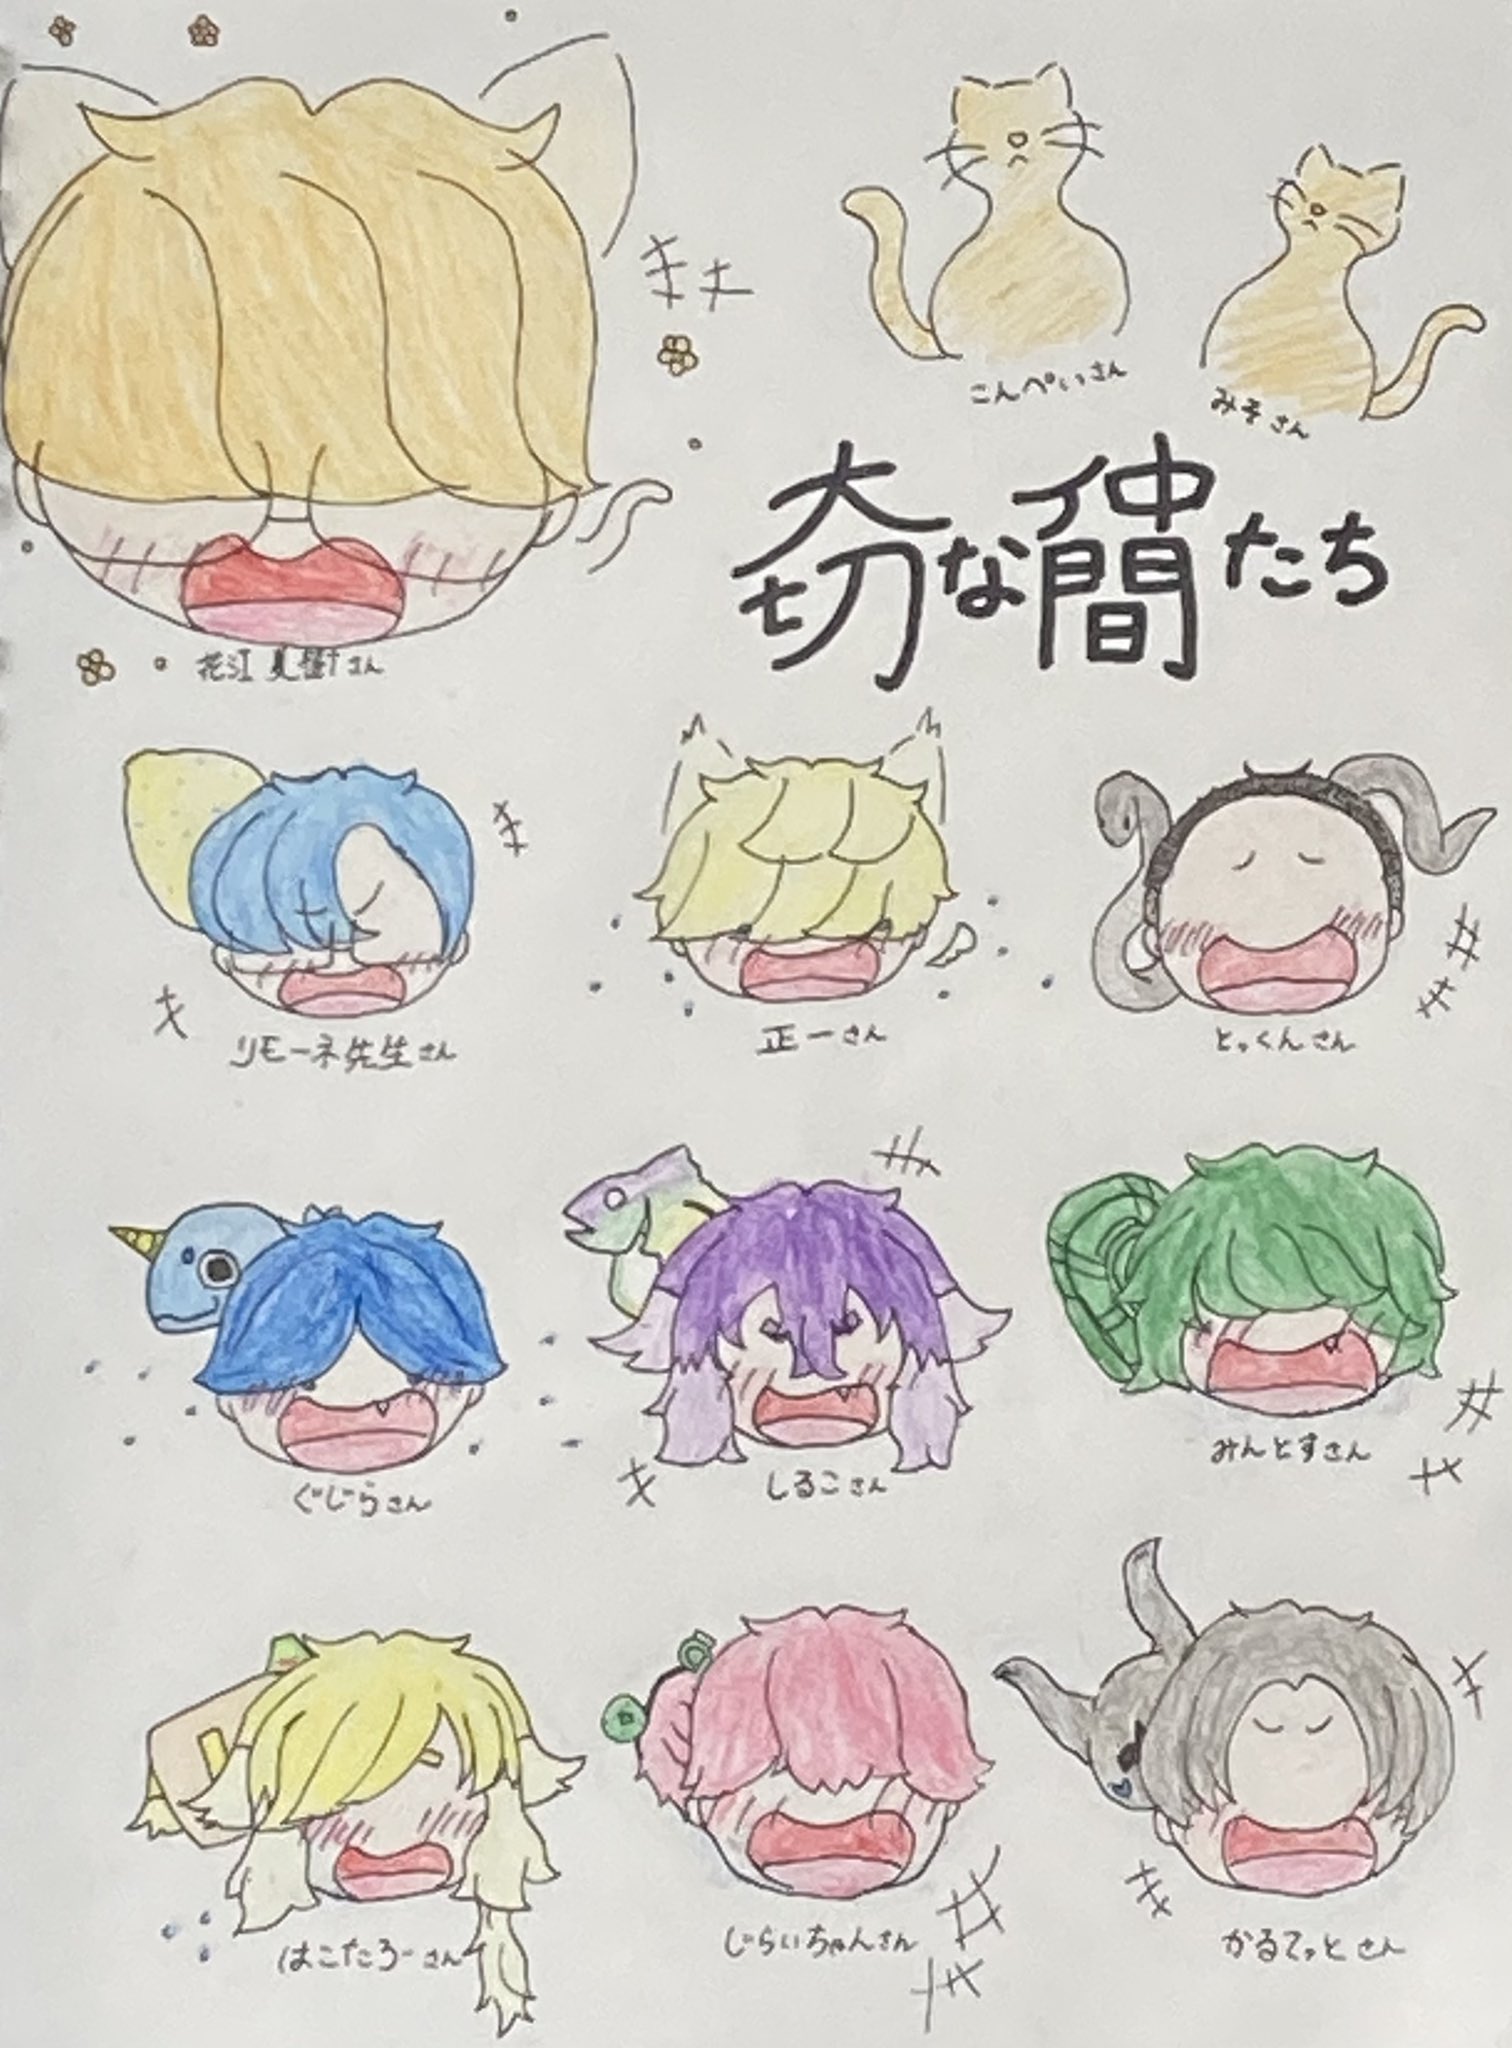 こんぺいさん
みそさん
大切な仲間たち
花江夏樹さん
リモーネ先生さん
正一さん
とっくんさん
ぐじらさん
しるこさん
みんとすさん
はこたろーさん
じらいちゃんさん
かるてっとさん